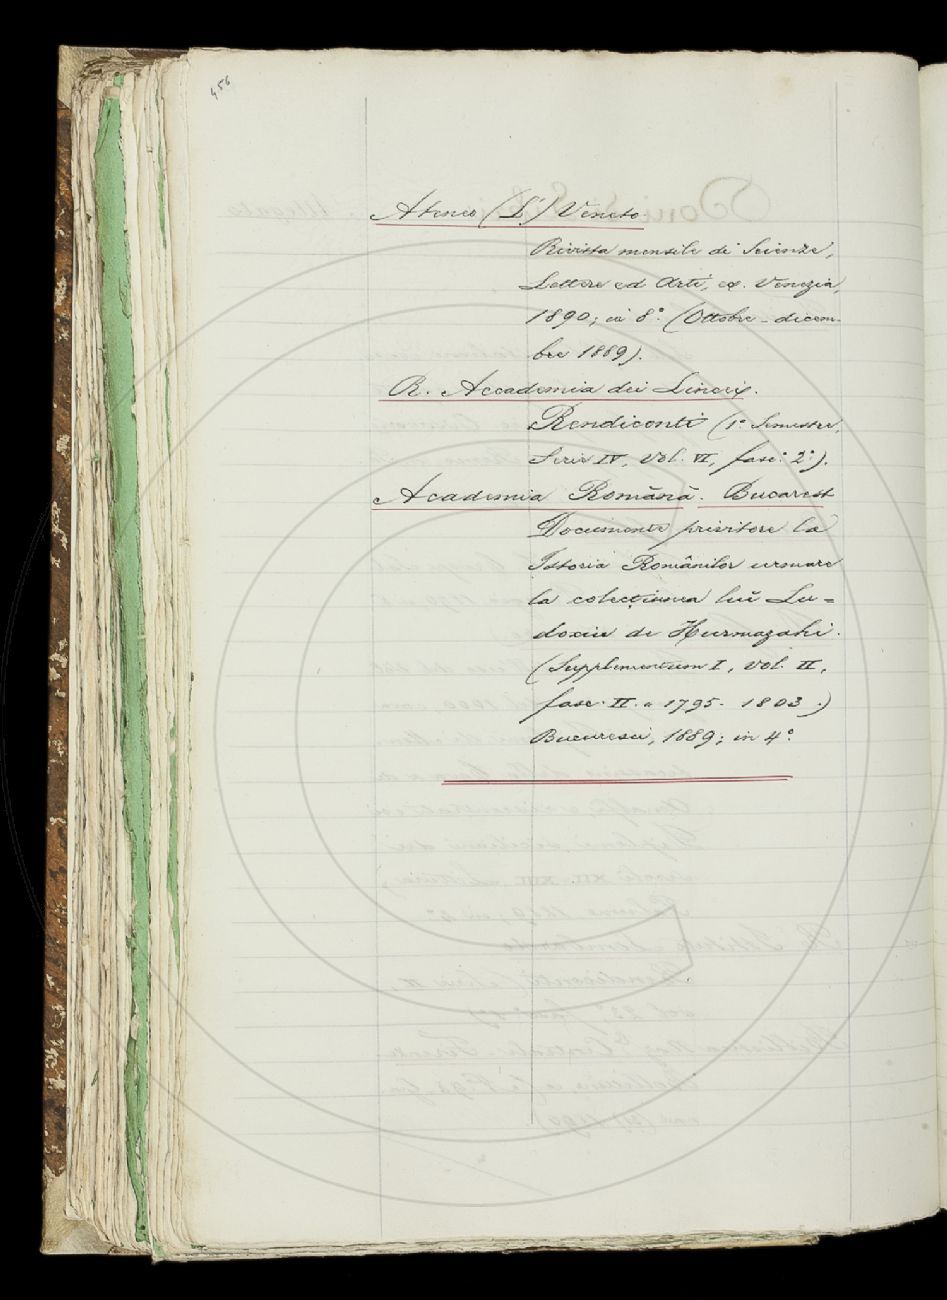 456
Ateneo (L') Veneto.
Rivista mensile di Scienze,
Lettere ed Arti, ex. Venezia,
1890; in 8.° (Ottobre - decem-
bre 1889).
R. Accademia dei Lincei.
Rendiconti (1° Semestre,
Serie IV, Vol. VI, fasc. 2°).
Academia Română. Bucarest
Documente privitore la
Istoria Românilor urmare
la colecțiunea luĭ Eu=
doxiu de Hurmuzaki.
(Supplementum I, Vol. II,
fasc. II. a 1795 - 1803.)
Bucuresci, 1889; in 4°.